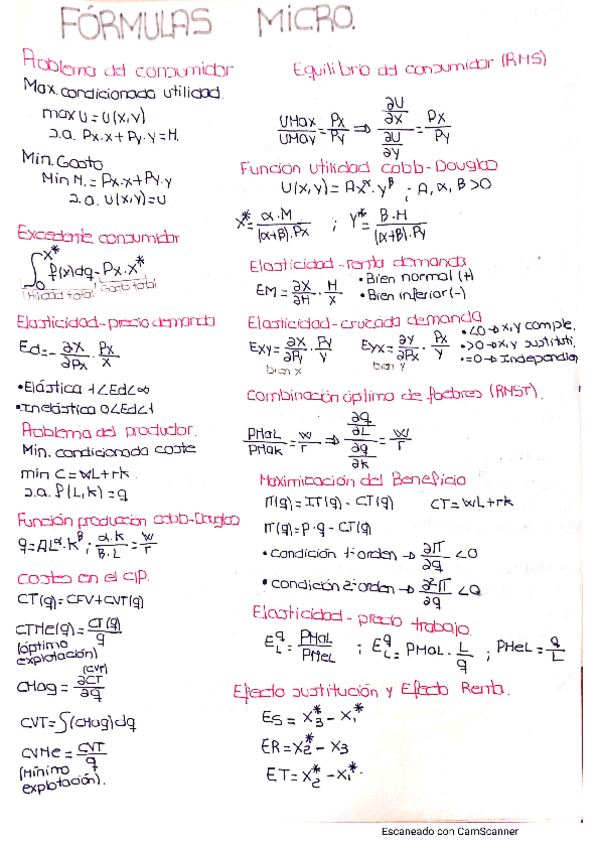 FÓRMULAS MICRO.
Problema del consumidor
Max. condicionada utilidad.
max U = U(x,y)
s.a. Px·x + Py·y = M.
Min. Gasto
Min M. = Px·x + Py·y
s.a. U(x,y) = U
Excedente consumidor
∫₀^x* f(x)dq - Px·x*
(Utilidad total) Gasto total
Elasticidad-precio demanda
Ed = - ∂x/∂Px · Px/x
•Elástica 1<Ed<∞
•Inelástica 0<Ed<1
Problema del productor.
Min. condicionada coste
min C = wL + rk.
s.a. f(L,k) = q
Función producción cobb-Douglas
q = AL^α·K^β ; α·K/B·L = w/r
Costes en el C/P.
CT(q) = CFV + CVT(q)
CTMe(q) = CT(q)/q
(óptimo explotación)
(CVT)
CMag = ∂CT/∂q
CVT = ∫(CMag)dq
CVMe = CVT/q
(Mínimo explotación).
Equilibrio del consumidor (RMS)
UMax/UMay = Px/Py ⇒ ∂U/∂x / ∂U/∂y = Px/Py
Función utilidad cobb-Douglas
U(x,y) = Ax^α·y^β ; A, α, B > 0
X* = α·M/(α+B)·Px ; Y* = B·M/(α+B)·Py
Elasticidad-renta demanda
EM = ∂X/∂M · M/X
•Bien normal (+)
•Bien inferior (-)
Elasticidad-cruzada demanda
Exy = ∂X/∂Py · Py/X
bien x
Eyx = ∂y/∂Px · Px/y
bien y
•<0 → x,y comple.
•>0 → x,y sustituti.
•=0 → Independien
Combinación óptima de factores (RMST).
PMaL/PMaK = w/r ⇒ ∂q/∂L / ∂q/∂k = w/r
Maximización del Beneficio
π(q) = IT(q) - CT(q) CT = wL + rk
π(q) = P·q - CT(q)
•Condición 1º orden → ∂π/∂q < 0
•condición 2º orden → ∂²π/∂q < 0
Elasticidad-precio trabajo.
E^q_L = PMaL/PMeL ; E^q_L = PMaL · L/q ; PMeL = q/L
Efecto sustitución y Efecto Renta.
ES = X₃* - X₁*
ER = X₂* - X₃
ET = X₂* - X₁*.
Escaneado con CamScanner